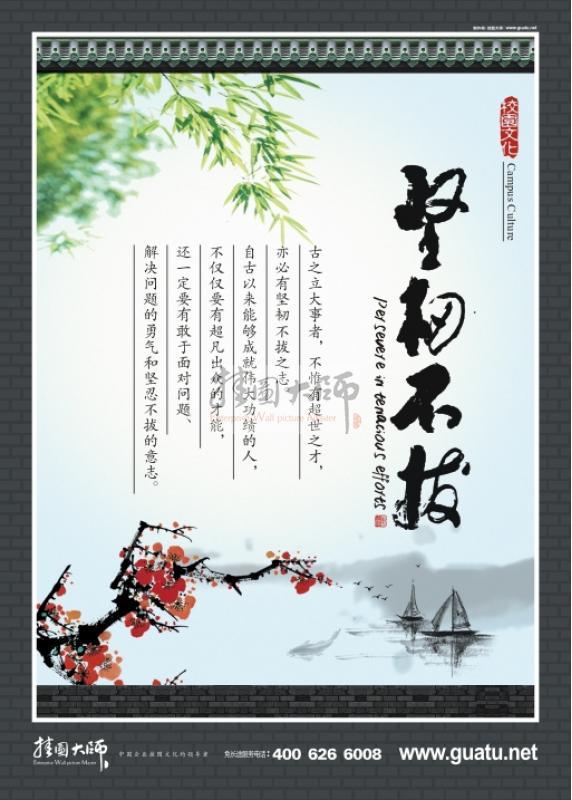 制作商：挂图大师 www.guatu.net
校园文化
Campus Culture
坚韧不拔
Persevere in tenacious efforts
古之立大事者，不惟有超世之才，
亦必有坚韧不拔之志
自古以来能够成就伟大功绩的人，
不仅仅要有超凡出众的才能，
还一定要有敢于面对问题、
解决问题的勇气和坚忍不拔的意志。
挂图大师
Enterprise Wall picture Master
挂图大师
Enterprise Wall picture Master
中国企业挂图文化的领导者
免长途服务电话：400 626 6008
www.guatu.net